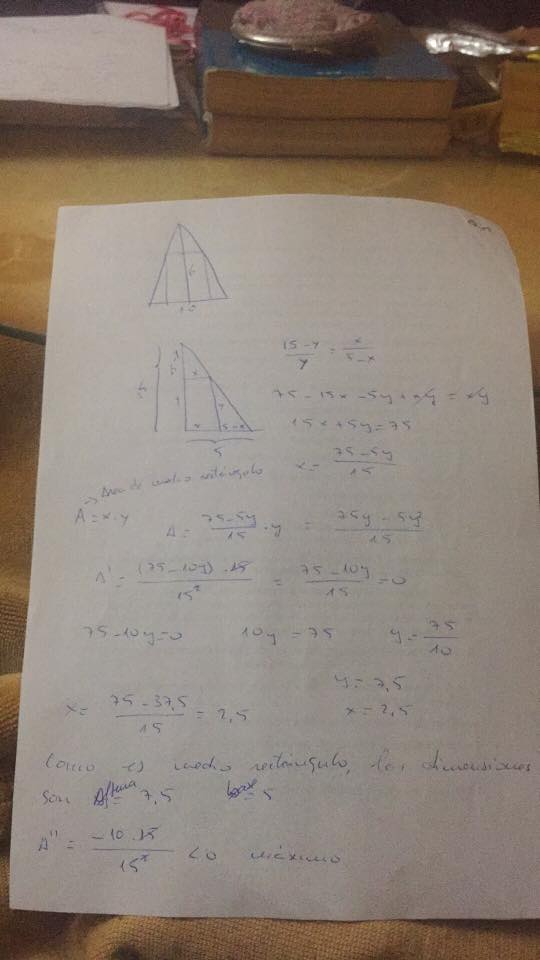 15
15-y/y = x/5-x
x
y
y
x
5-x
5
75-15x-5y+xy = xy
15x+5y=75
x= 75-5y/15
Area de medio rectángulo
A=x·y
A= 75-5y/15 ·y = 75y-5y²/15
A'= (75-10y)·15/15² = 75-10y/15 =0
75-10y=0 10y=75 y= 75/10
y=7,5
x= 75-37,5/15 = 2,5 x=2,5
Como es medio rectángulo, las dimensiones
son altura= 7,5 base= 5
A''= -10·15/15² <0 máximo